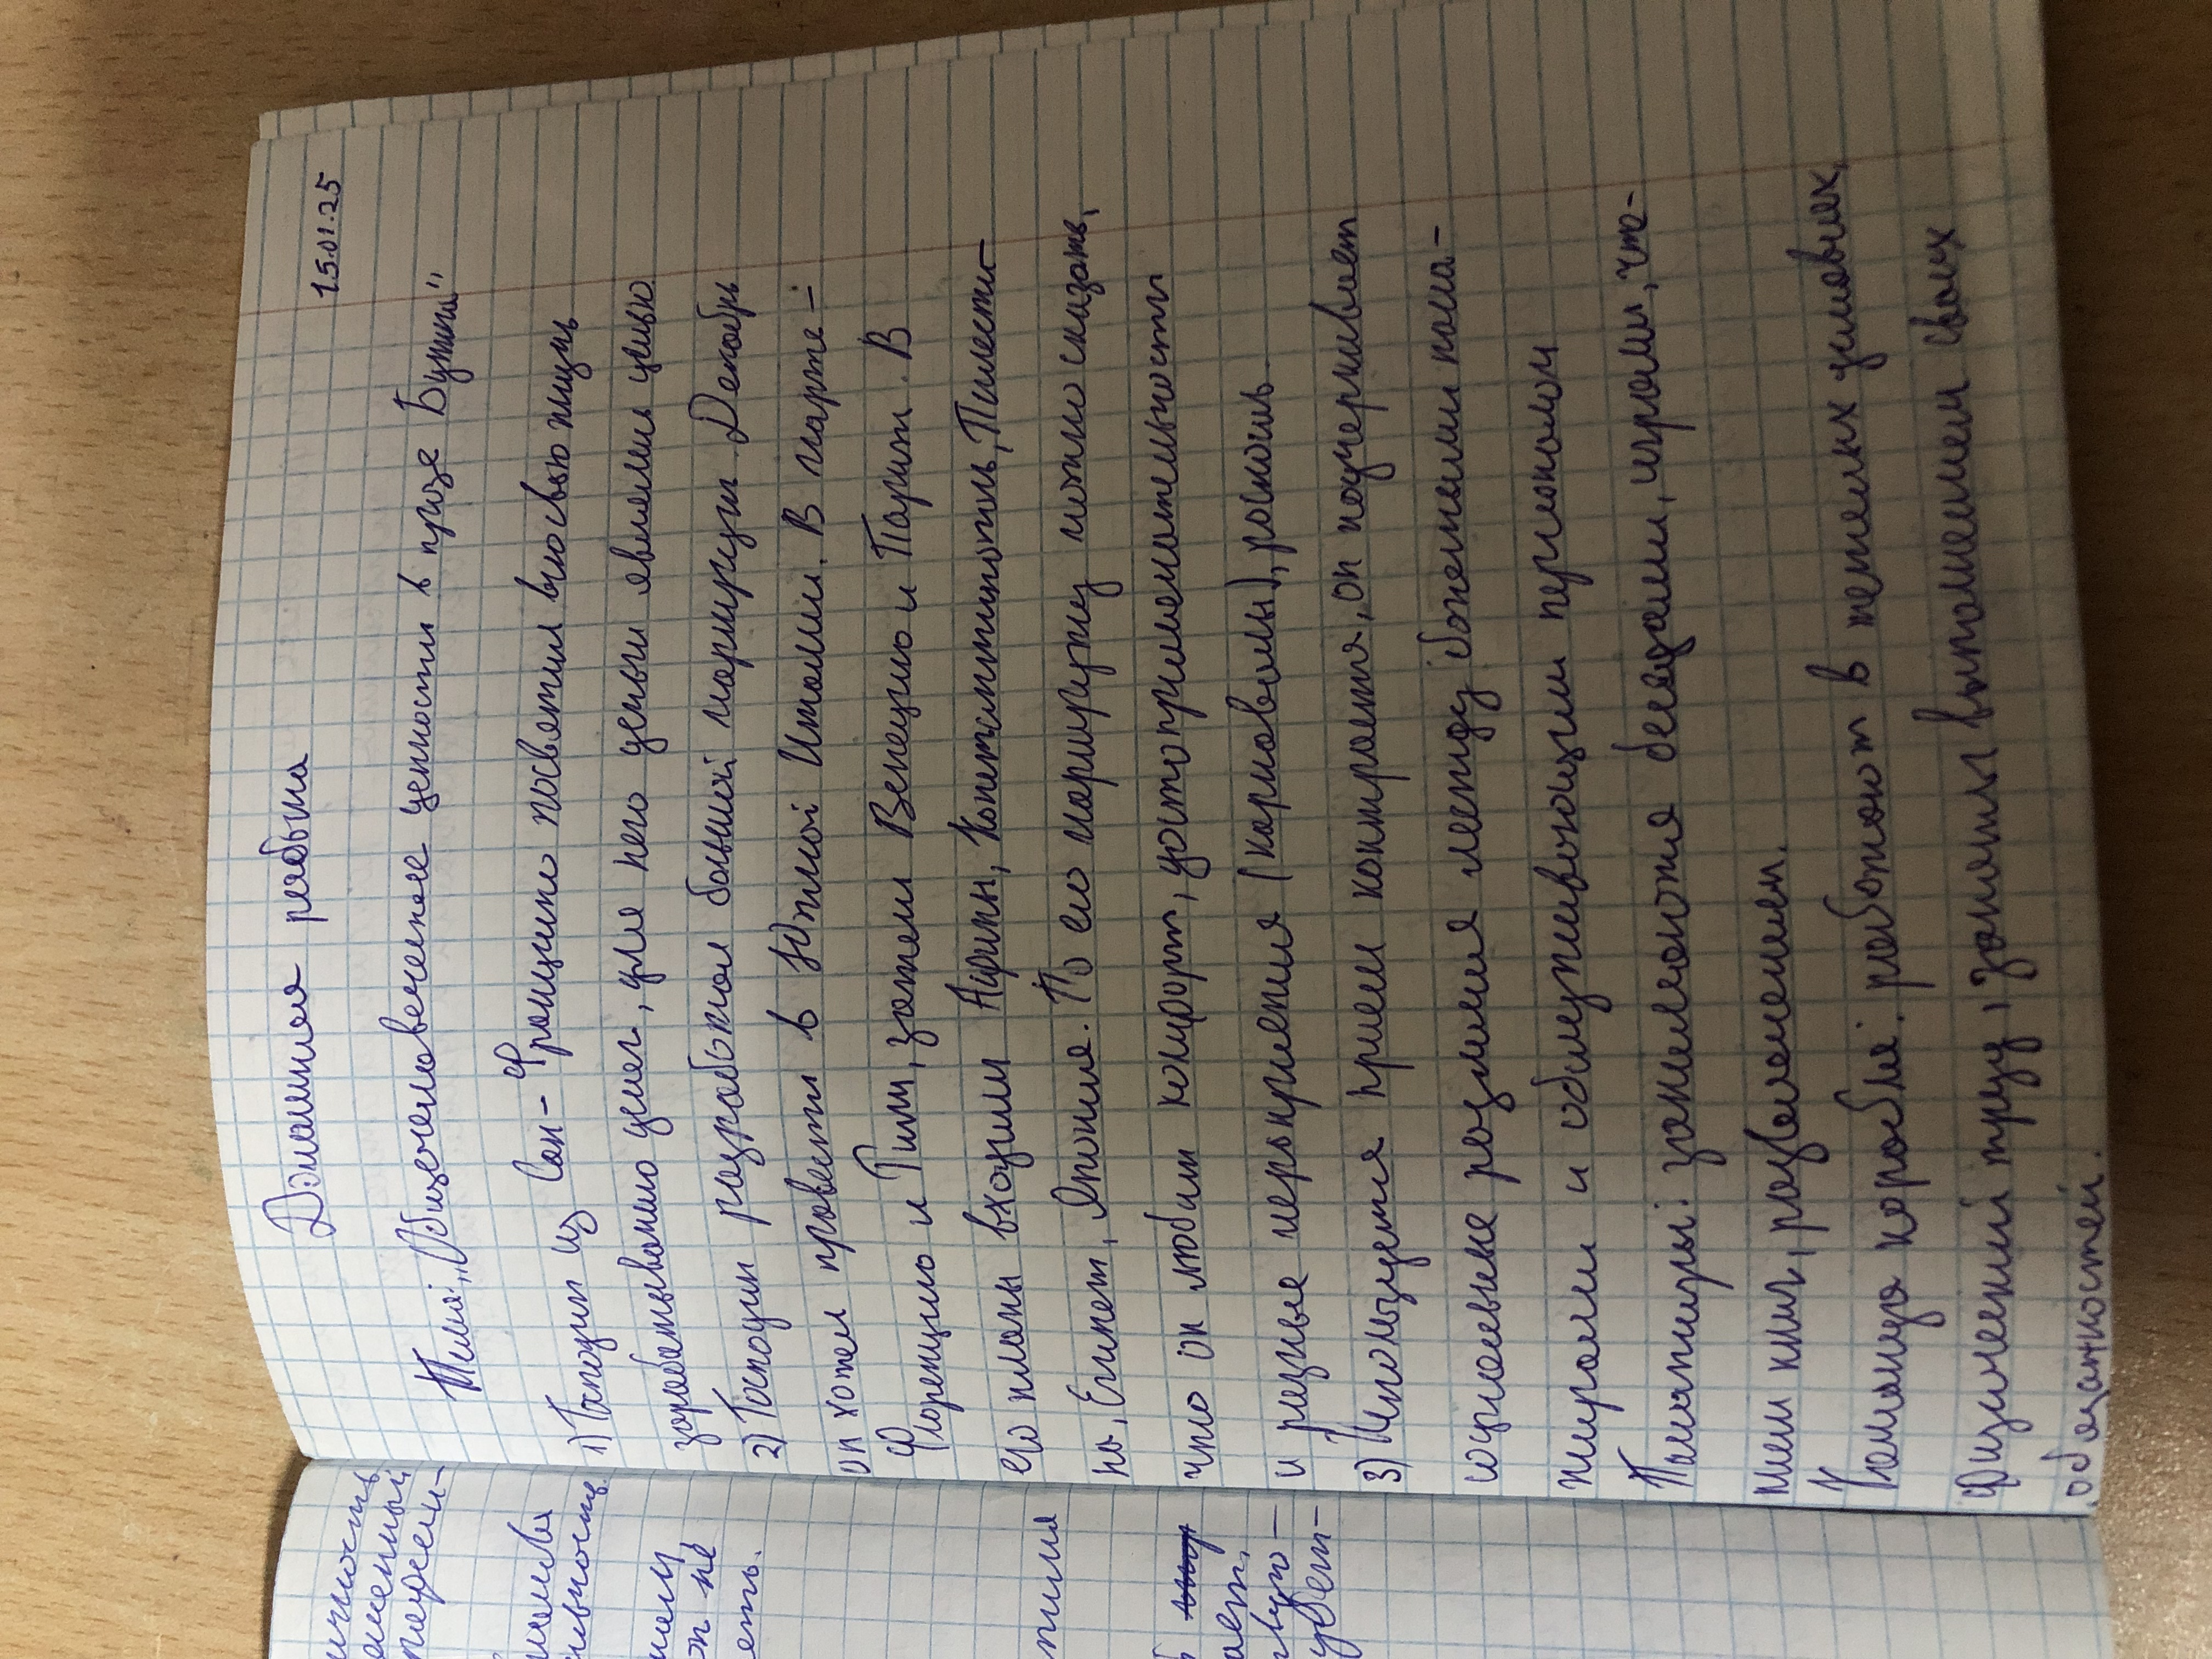 15.01.25
Домашняя работа
Тема: „Общечеловеческие ценности в прозе Бунина"
1) Господин из Сан-Франциско посвятил всю свою жизнь
зарабатыванию денег, для него деньги являлись целью
2) Господин разработал большой маршрут. Декабрь
он хотел провести в Южной Италии. В марте -
Флоренцию и Рим, затем Венецию и Париж. В
его планы входили Афины, Константинополь, Палести-
на, Египет, Япония. По его маршруту можно сказать,
что он любит комфорт, достопримечательности
и разные мероприятия (карновалы), роскошь.
3) Используется прием контраста, он подчеркивает
социальные различия между богатыми пасса-
жирами и обслуживающим персоналом
Пассажиры: занимаются беседами, играми, чте-
нием книг, развлечением.
Команда корабля: работают в тяжелых условиях,
физический труд, заняты выполнением своих
обязанностей.